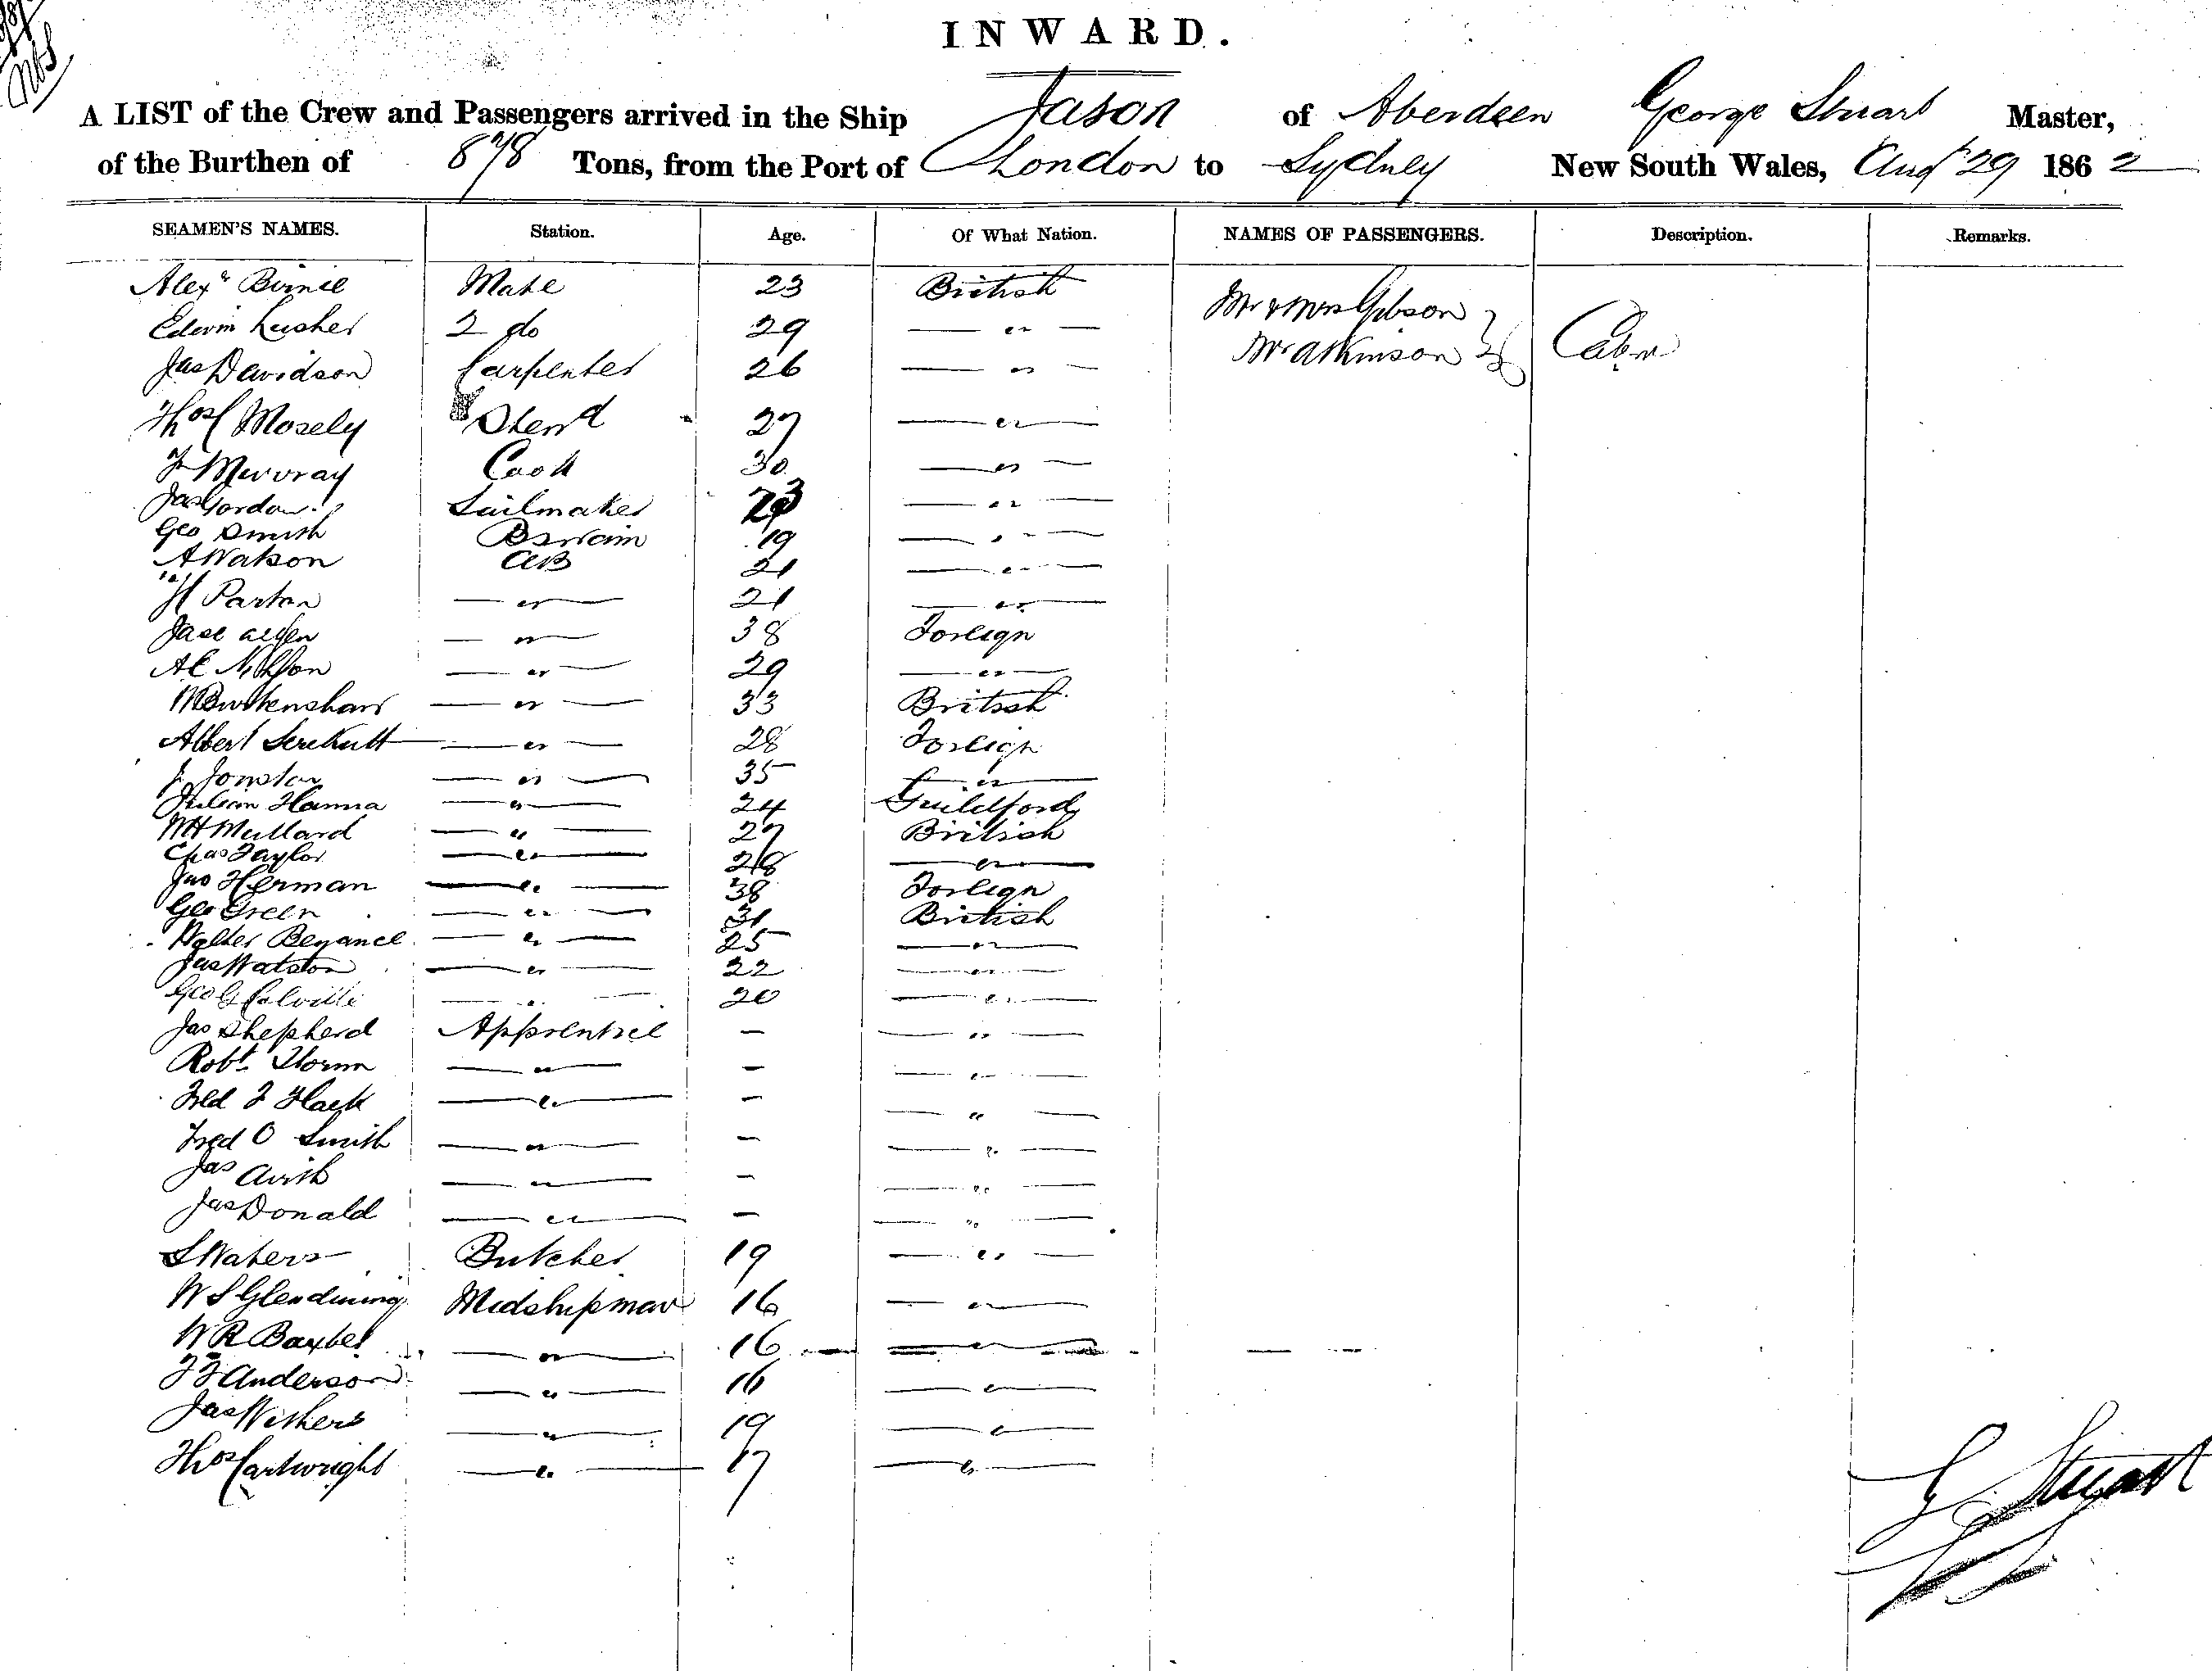 INWARD.
A LIST of the Crew and Passengers arrived in the Ship Jason of Aberdeen George Stuart Master,
of the Burthen of 878 Tons, from the Port of London to Sydney New South Wales, Augt 29 1862
SEAMEN'S NAMES. Station. Age. Of What Nation. NAMES OF PASSENGERS. Description. Remarks.
Alexr Birnie Mate 23 British Mr & Mrs Gibson
Edwin Lusher 2 do 29 — " —
Mr Atkinson Cabin
Jas Davidson Carpenter 26 — " —
Thos Mosely Stewd 27 — " —
J Murray Cook 30 — " —
Jas Gordon Sailmaker 23 — " —
Geo Smith Bswain 19 — " —
A Watson AB 21 — " —
H Parton — " — 21 — " —
— " — 38 Foreign
— " — 29 — " —
— " — 33 British
Albert — " — 28 Foreign
J. Jonston — " — 35 — " —
Julian Hanna — " — 24 Guildford
WH Mullard — " — 27 British
Chas Taylor — " — 28 — " —
Jas Herman — " — 38 Foreign
Geo Green — " — 31 British
Walter — " — 25 — " —
Jas Watston — " — 22 — " —
Geo G Colville — " — 20 — " —
Jas Shepherd Apprentice — — " —
Robt Storm — " — — — " —
Fred F Flack — " — — — " —
Fred O Smith — " — — — " —
Jas — " — — — " —
Jas Donald — " — — — " —
S Waters Butcher 19 — " —
W S Glendining Midshipman 16 — " —
W R Baxter — " — 16 — " —
F F Anderson — " — 16 — " —
Jas Withers — " — 19 — " —
Thos Cartwright — " — 17 — " —
G Stuart